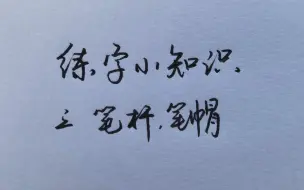 练字小知识、
三 笔杆、笔帽